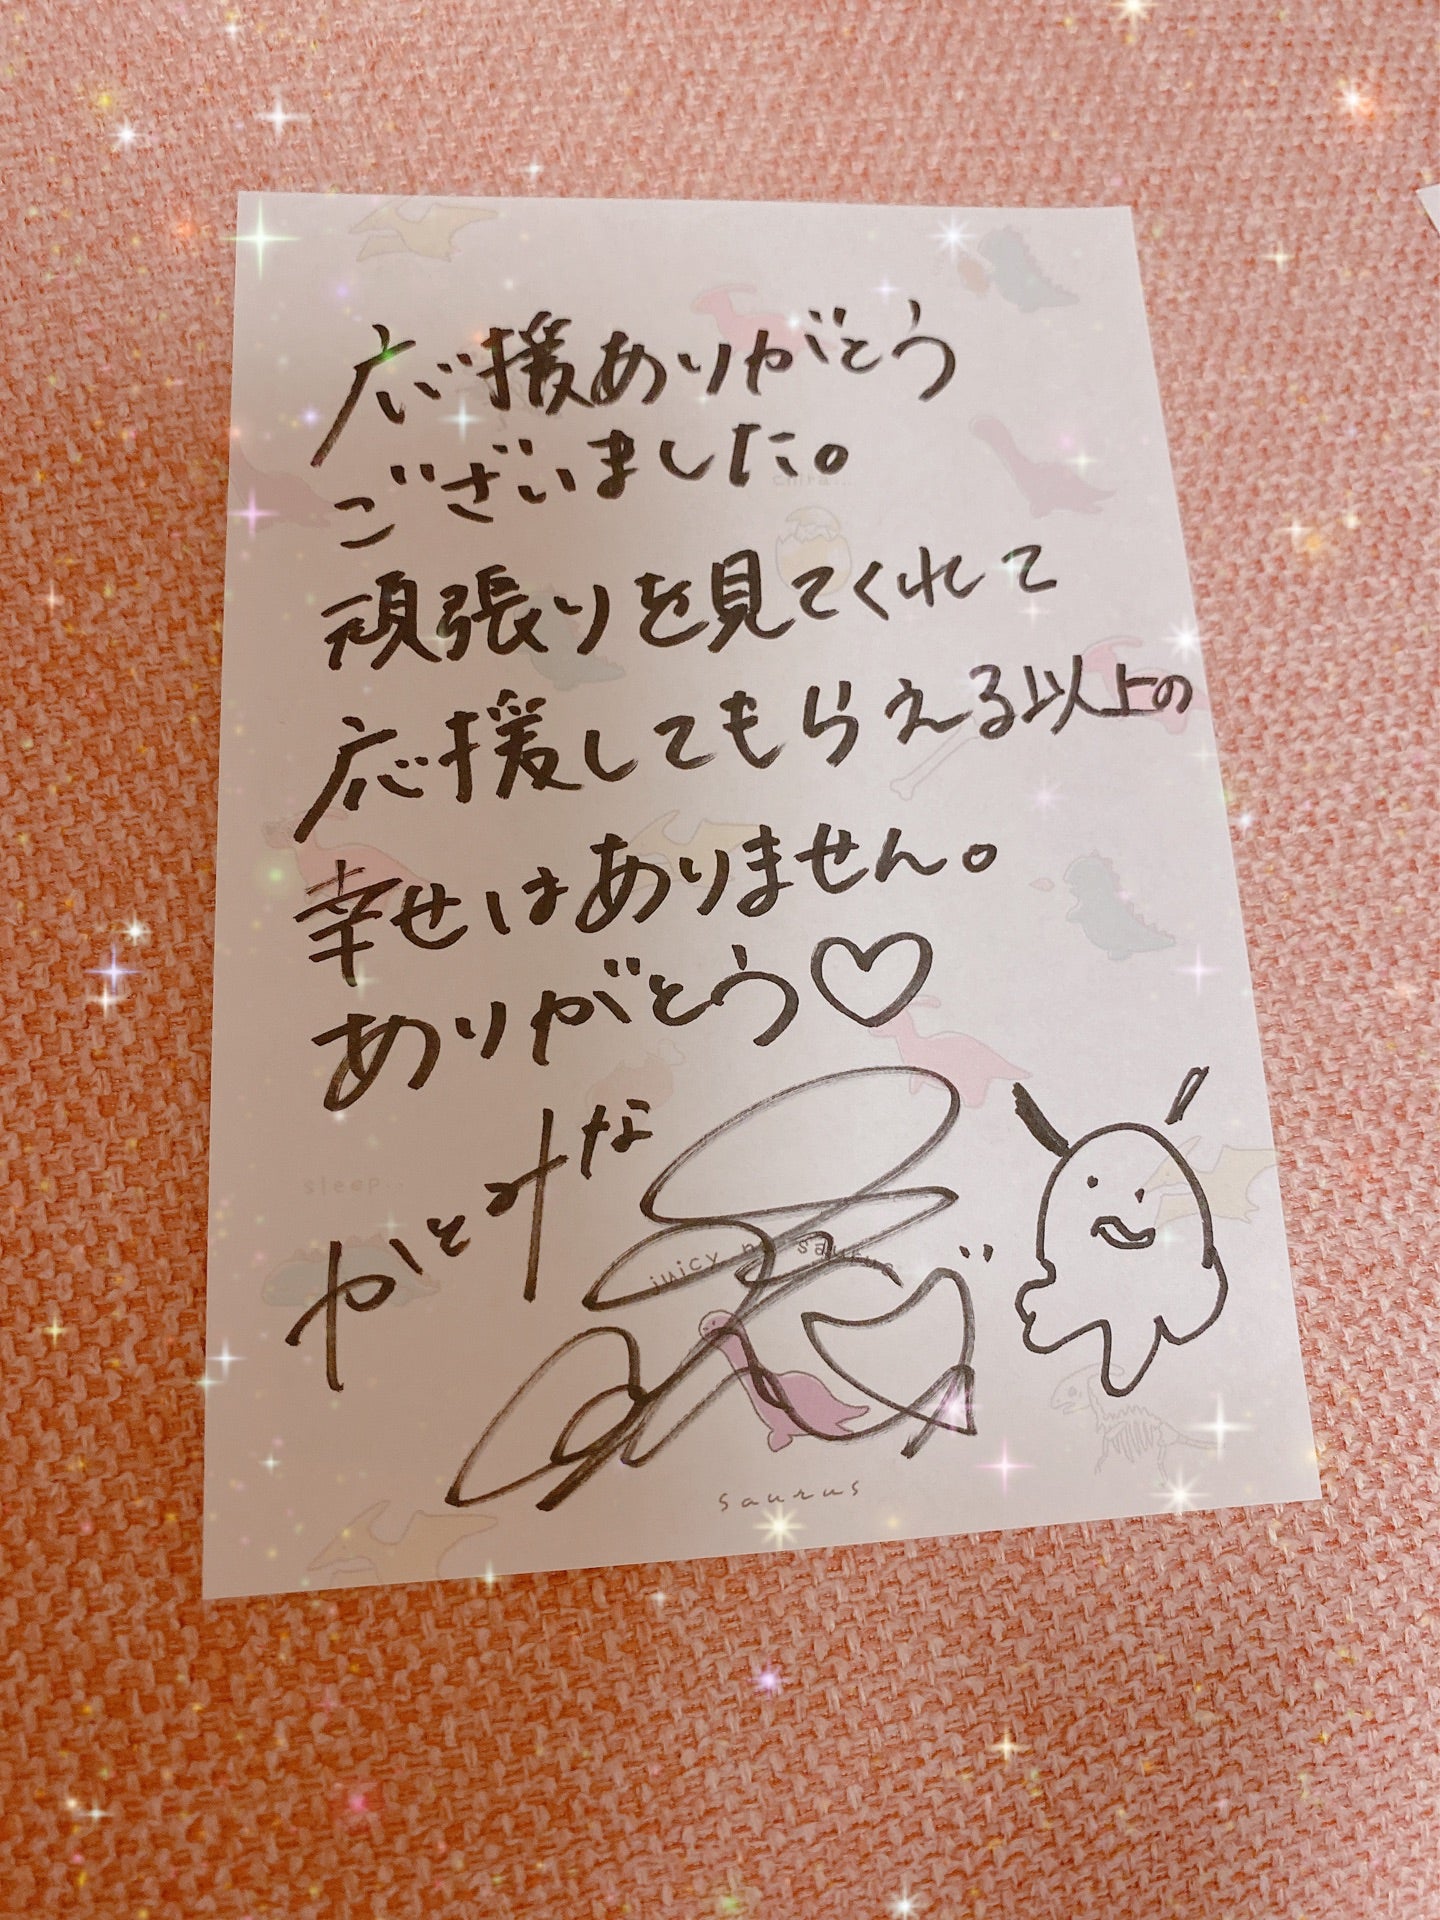 応援ありがとう
ございました。
頑張りを見てくれて
応援してもらえる以上の
幸せはありません。
ありがとう♡
かとみな
chira...
sleep..
juicy
saurus